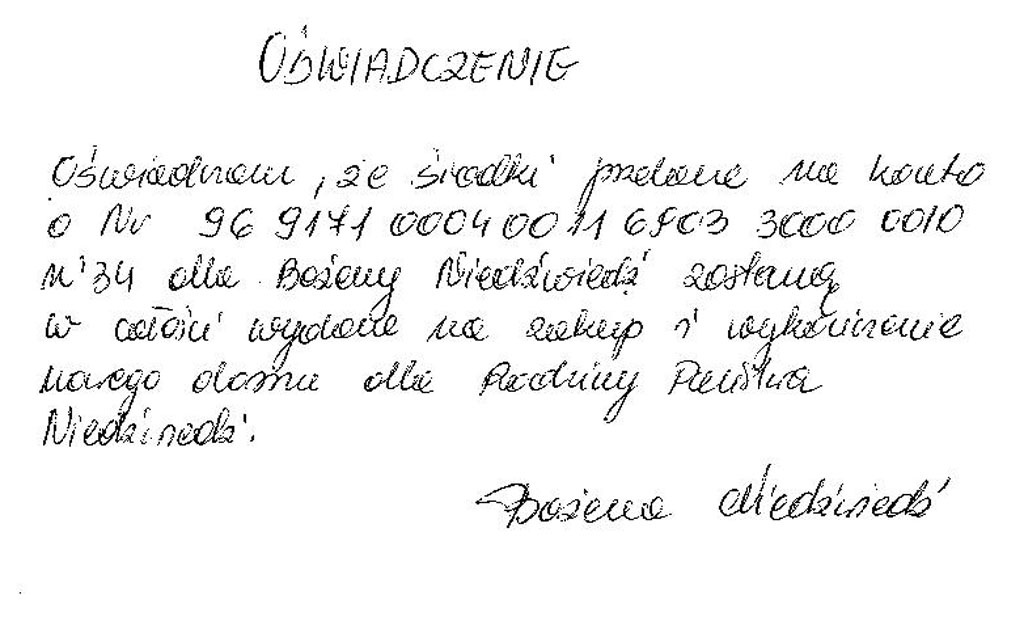 OŚWIADCZENIE
Oświadczam, że środki przelane na konto
o Nr 96 9171 0004 0011 6903 3000 0010
dla Bożeny Niedźwiedź zostaną
w całości wydane na zakup i wykończenie
nowego domu dla Rodziny Państwa
Niedźwiedź.
Bożena Niedźwiedź